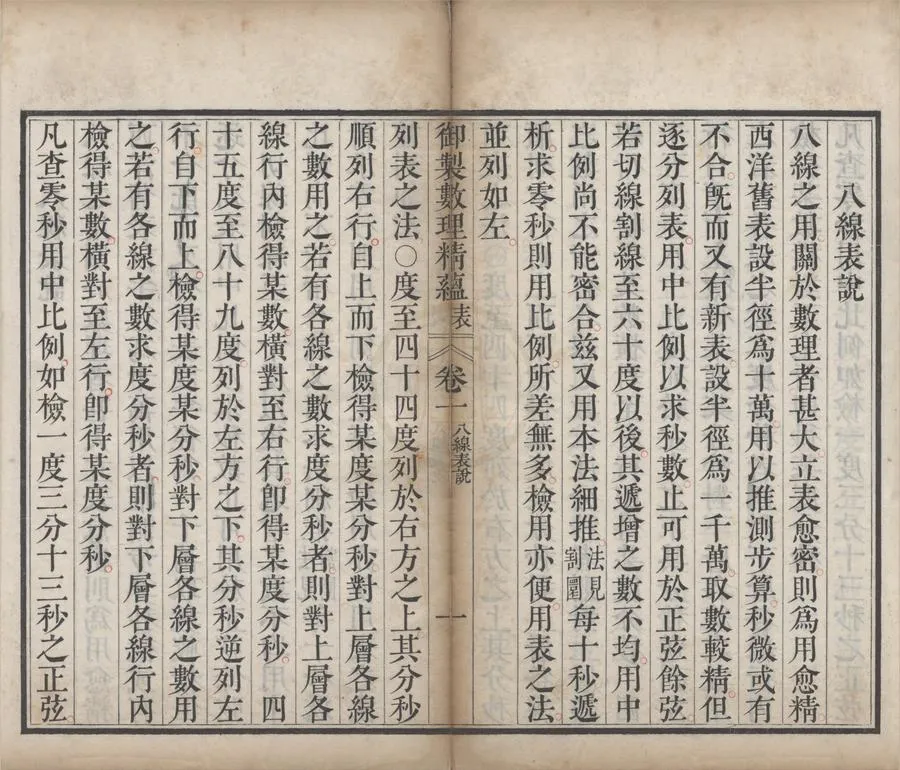 八線表說
八線之用關於數理者甚大立表愈密則爲用愈精
西洋舊表設半徑爲十萬用以推測步算秒微或有
不合旣而又有新表設半徑爲一千萬取數較精但
逐分列表用中比例以求秒數止可用於正弦餘弦
若切線割線至六十度以後其遞增之數不均用中
比例尚不能密合茲又用本法細推法見割圜每十秒遞
析求零秒則用比例所差無多檢用亦便用表之法
並列如左
御製數理精蘊 表 卷一 八線表說 一
列表之法○度至四十四度列於右方之上其分秒
順列右行自上而下檢得某度某分秒對上層各線
之數用之若有各線之數求度分秒者則對上層各
線行內檢得某數橫對至右行卽得某度分秒 四
十五度至八十九度列於左方之下其分秒逆列左
行自下而上檢得某度某分秒對下層各線之數用
之若有各線之數求度分秒者則對下層各線行內
檢得某數橫對至左行卽得某度分秒
凡查零秒用中比例如檢一度三分十三秒之正弦